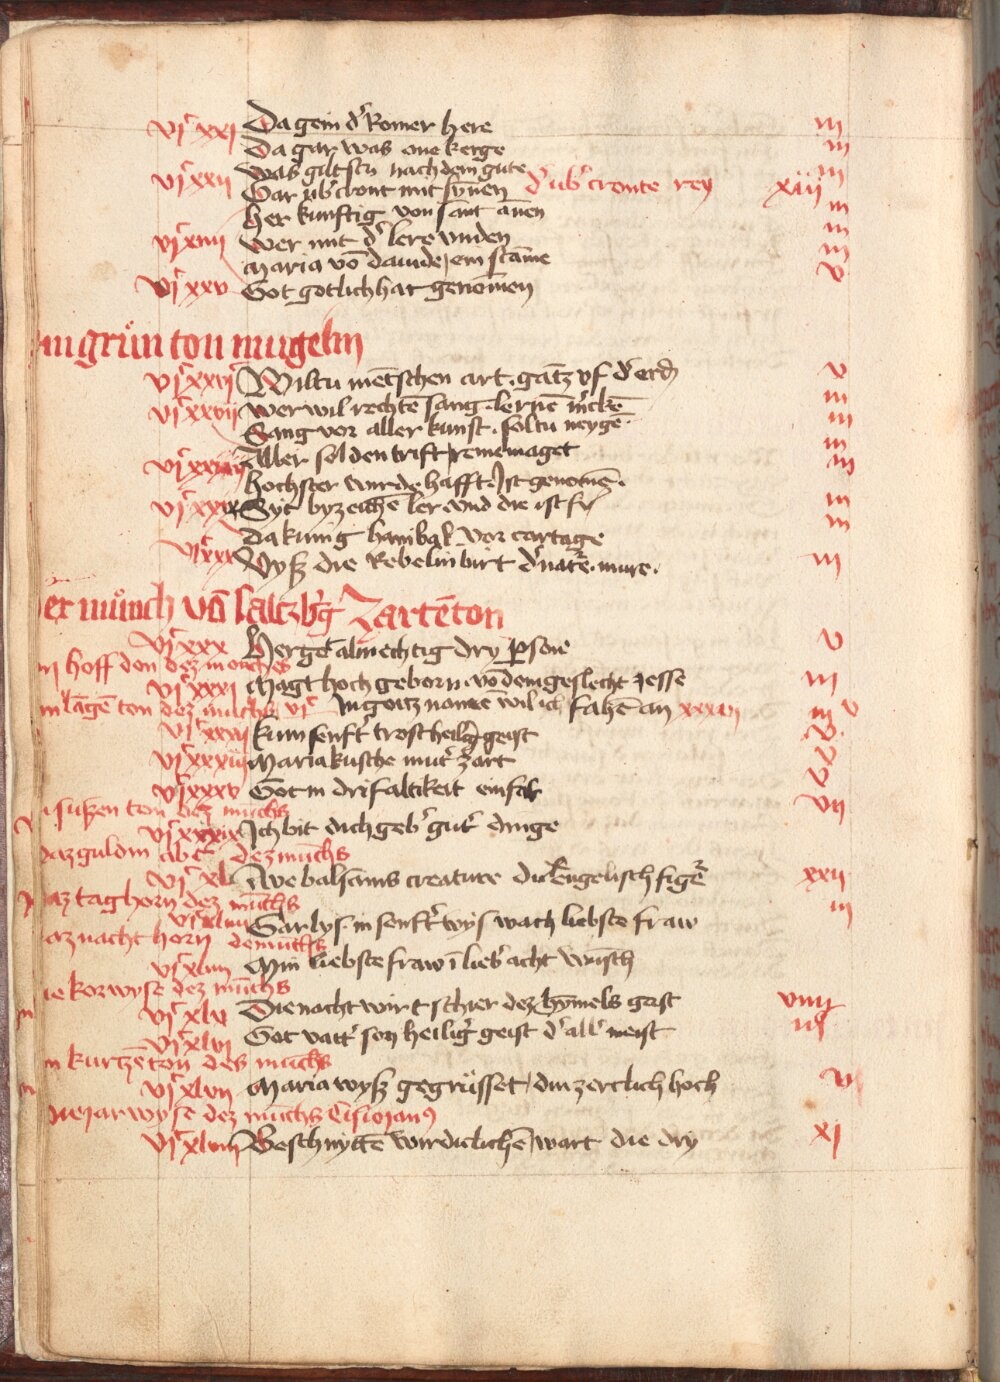 vjᶜ xxj Da gein dʼ Romer here iij
Da gar was one kerge iij
vjᶜ xxij was giltstu nach dem gute iij
Gar vbʼ cront mit synnen dʼ vbʼ cronte rey xiij
Her kunftig von sant annen iij
vjᶜ xxiiij Wer mit dʼ lere vinden iij
Maria vō dauide ein stāme iij
vjᶜ xxv Got gotlich hat genōmen v
In grün ton mugelin
vjᶜ xxvj Wiltu mētschen art. gātz vf dʼ erd v
vjᶜ xxvij Wer wil rechtē sang. lernē mʼckē iij
Sang vor aller kunst. soltu neygē iij
vjᶜ Aller sol den trift reine maget iij
hochster wirde hafft. Ist genomē. iij
vjᶜ xxix Syt byzeichē ler. vnd die ist iij
Da kunig hanibal vor cartage iij
vjᶜ xxx Vyß die Rebelin birt dʼ natʼe. mure. iij
er münch vō saltzbʼg Zartēton
vjᶜ xxx Hergot almechtig dry psone v
In hoff don dez monches
vjᶜ xxxj Magt hoch geborn. vō dem geslecht jesse iij
m lāgē ton dez munchs vjᶜ In gotz namē wil ich fahē an xxxvj v
vjᶜ kum senftʼ trost heilgʼ geist
vjᶜ xxxiij Maria kusche mutʼ zart v
vjᶜ xxxv Got in drifaltikeit einfalt v
süßen ton dez munchs vij
vjᶜ xxxix Ich bit dich gebʼ gutʼ dinge
daz guldin abc dez munchs
vjᶜ xl Ave balsams creature du Engelisch figʼe xxij
Daz taghorn dez munchs iij
vjᶜ Gar lys. in senftʼ wys wach liebste fraw
daz nacht horn dez munchs
vjᶜ xliiij Min liebste fraw ī liebʼ acht
die korwyse dez munchs
vjᶜ xlv Die nacht wirt schier dez hymels gast viiij
vjᶜ xlvj Got vattʼ son heiligʼ geist dʼ allʼ meist iij
In kurtzē ton des munchs
vjᶜ xlvij Maria wyß gegrüsset, din zertlich hoch v
die jar wyse dez munchs Cisiojanꝰ
vjᶜ xlviij Beschnyttē wirdiclichē wart die dry xj